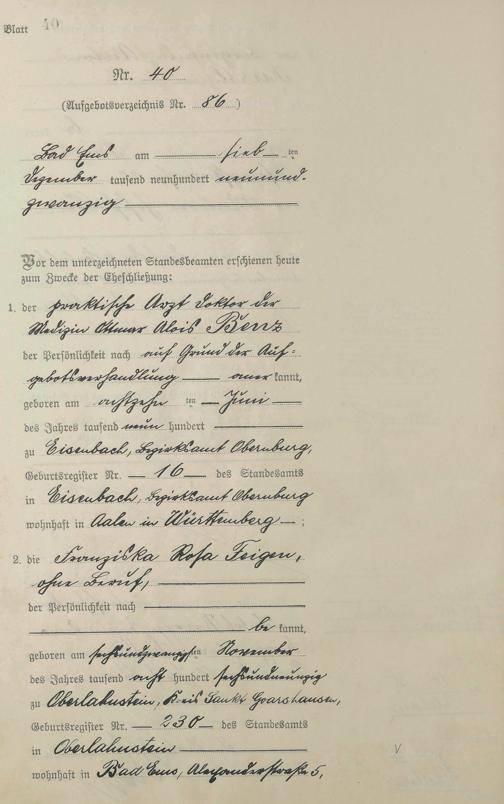 Blatt 40
Nr. 40
(Aufgebotsverzeichnis Nr. 86)
Bad Ems am sieb ten
Dezember tausend neunhundert neunund-
zwanzig
Vor dem unterzeichneten Standesbeamten erschienen heute
zum Zwecke der Eheschließung:
1. der praktische Arzt Doktor der
Medizin Ottmar Alois Benz
der Persönlichkeit nach auf Grund der Auf-
gebotsverhandlung aner kannt,
geboren am achtzehn ten Juni
des Jahres tausend neun hundert
zu Eisenbach, Bezirksamt Obernburg,
Geburtsregister Nr. 16 des Standesamts
in Eisenbach, Bezirksamt Obernburg
wohnhaft in Aalen in Württemberg ;
2. die Franziska Rosa Feigen,
ohne Beruf,
der Persönlichkeit nach
be kannt,
geboren am sechsundzwanzigsten November
des Jahres tausend acht hundert sechsundneunzig
zu Oberlahnstein, Kreis Sankt Goarshausen,
Geburtsregister Nr. 230 des Standesamts
in Oberlahnstein
wohnhaft in Bad Ems, Alexanderstraße 5,